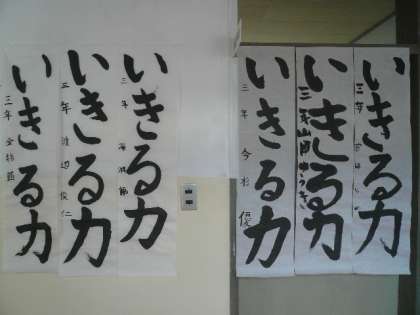 いきる力
三年
いきる力
三年
いきる力
三年 今杉 優
いきる力
三年
いきる力
三年 渡辺俊仁
いきる力
三年